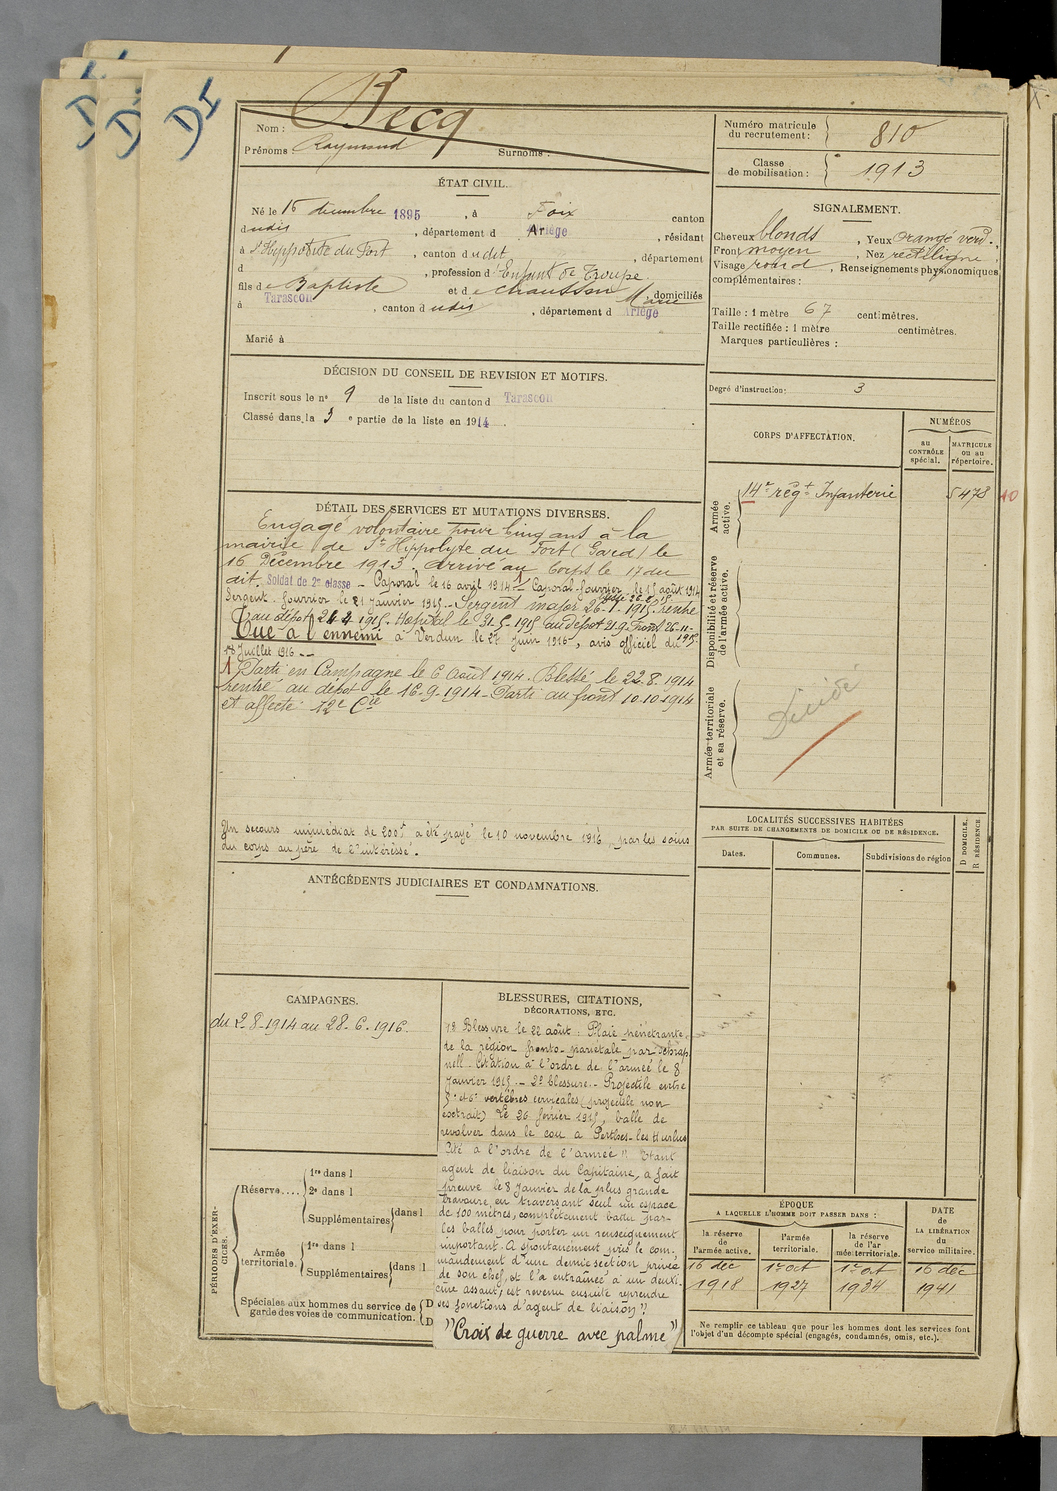 DI
DI
DI
Nom : Becq
Prénoms : Raymond Surnoms :
Numéro matricule du recrutement : 810
Classe de mobilisation : 1913
ÉTAT CIVIL.
Né le 16 décembre 1895, à Foix canton
dudit, département d Ariège, résidant
à St Hippolyte du Fort, canton dudit, département
d , profession d'Enfant de Troupe
fils de Baptiste et de Chausson Marie, domiciliés
à Tarascon, canton dudit, département d Ariège
Marié à
SIGNALEMENT.
Cheveux blonds, Yeux orangé verd.
Front moyen, Nez rectiligne
Visage rond, Renseignements physionomiques
complémentaires :
Taille : 1 mètre 67 centimètres.
Taille rectifiée : 1 mètre centimètres.
Marques particulières :
Degré d'instruction : 3
DÉCISION DU CONSEIL DE REVISION ET MOTIFS.
Inscrit sous le n° 9 de la liste du canton d Tarascon
Classé dans la 3e partie de la liste en 1914.
CORPS D'AFFECTATION.
NUMÉROS
au CONTRÔLE spécial.
MATRICULE ou au répertoire.
Armée active.
14e régt Infanterie 5473 10
Disponibilité et réserve de l'armée active.
Armée territoriale et sa réserve.
Décédé
DÉTAIL DES SERVICES ET MUTATIONS DIVERSES.
Engagé volontaire pour cinq ans à la
mairie de St Hippolyte du Fort (Gard) le
16 Décembre 1913. Arrivé au Corps le 17 du
dit. Soldat de 2e classe - Caporal le 16 avril 1914 1) - Caporal-fourrier le 15 août 1914
Sergent fourrier le 21 Janvier 1915 - Sergent major 26-1-1915. rentré
au dépôt 24 4 1915. Hopital le 31-5-1915 au dépôt 21.9. Front 26-11-1915
Tué à l'ennemi à Verdun le 27 Juin 1916, avis officiel du
18 Juillet 1916 --
1) Parti en Campagne le 6 Août 1914. Blessé le 22.8.1914
rentré au dépôt le 16-9-1914 - Parti au front 10.10.1914
et affecté 12e Cie
Un secours immédiat de 200f a été payé le 10 novembre 1916, par les soins
du corps au père de l'intéressé.
LOCALITÉS SUCCESSIVES HABITÉES
PAR SUITE DE CHANGEMENTS DE DOMICILE OU DE RÉSIDENCE.
Dates. Communes. Subdivisions de région
D DOMICILE.
R RÉSIDENCE
ANTÉCÉDENTS JUDICIAIRES ET CONDAMNATIONS.
CAMPAGNES.
du 2-8-1914 au 28-6-1916.
BLESSURES, CITATIONS,
DÉCORATIONS, ETC.
1e Blessure le 22 août : Plaie pénétrante
de la région fronto-pariétale par schrap
nell - Citation à l'ordre de l'armée le 8
Janvier 1915 - 2e blessure - Projectile entre
5e et 6e vertèbres cervicales (projectile non
extrait) Le 26 février 1915, balle de
revolver dans le cou à Perthes-les-Hurlus
Cité à l'ordre de l'armée "Etant
agent de liaison du Capitaine, a fait
preuve le 8 Janvier de la plus grande
bravoure, en traversant seul un espace
de 100 mètres, complètement battu par
les balles, pour porter un renseignement
important. A spontanément pris le com-
mandement d'une demie section privée
de son chef, et l'a entraînée à un deuxi-
ème assaut, est revenu ensuite reprendre
ses fonctions d'agent de liaison"
"Croix de guerre avec palme"
PÉRIODES D'EXERCICES.
Réserve.... 1re dans l
2e dans l
Supplémentaires dans l
Armée territoriale. 1re dans l
Supplémentaires dans l
Spéciales aux hommes du service de garde des voies de communication. D
D
ÉPOQUE
A LAQUELLE L'HOMME DOIT PASSER DANS :
la réserve de l'armée active.
l'armée territoriale.
la réserve de l'armée territoriale.
DATE de LA LIBÉRATION du service militaire.
16 déc 1er oct 1er oct 16 déc
1918 1927 1934 1941
Ne remplir ce tableau que pour les hommes dont les services font
l'objet d'un décompte spécial (engagés, condamnés, omis, etc.).